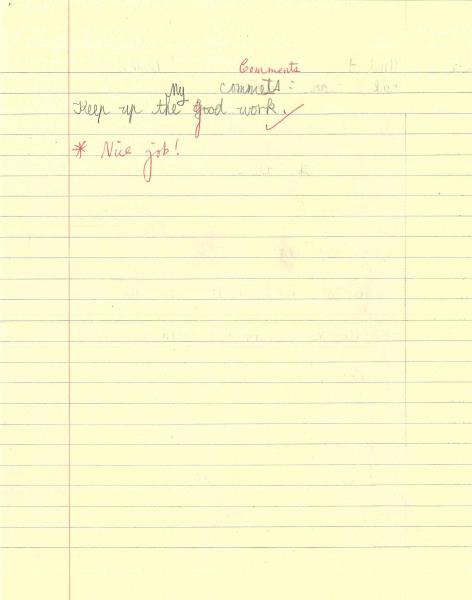 Comments
My commets:
Keep up the good work.
* Nice job!